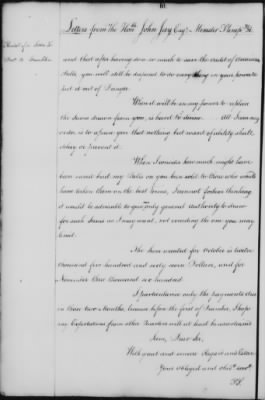 Letters from The Honble John Jay Esqr - Minister Plenipo &c.
and that after having done so much to save the credit of American
Bills you will still be disposed to do every thing in your power to
put it out of Danger.
When it will be in my power to replace
the Sums drawn from you, is hard to say. All I can say
order is to assure you that nothing but want of ability shall
delay or prevent it.
When I consider how much might have
been saved had my Bills on you been sold to those who would
have taken them on the best terms, I cannot forbear thinking
it would be adviseable to give me general Authority to draw
for such Sums as I may want, not exceeding the one you may
limit.
The Sum wanted for October is twelve
thousand five hundred and sixty seven Dollars, and for
November One thousand six hundred.
I particularize only the payments due
in those two Months, because before the first of December I hope
my Expectations from other Quarters will at least be ascertained.
I am, Dear Sir,
With great and sincere Regard and Esteem
Your obliged and obt. servt.